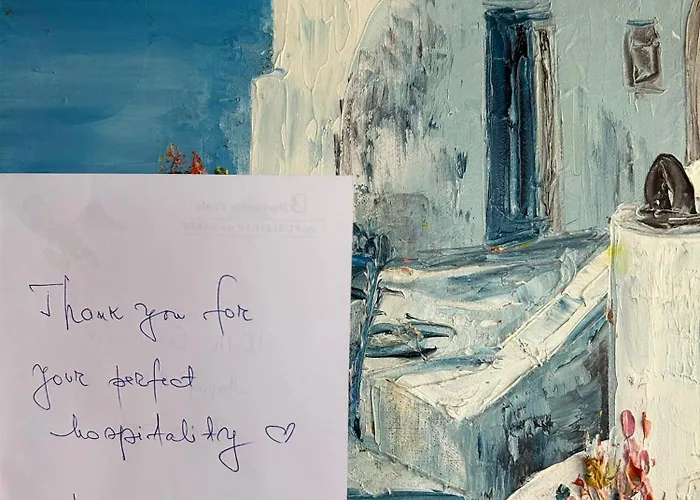 Thank you for
your perfect
hospitality ♡